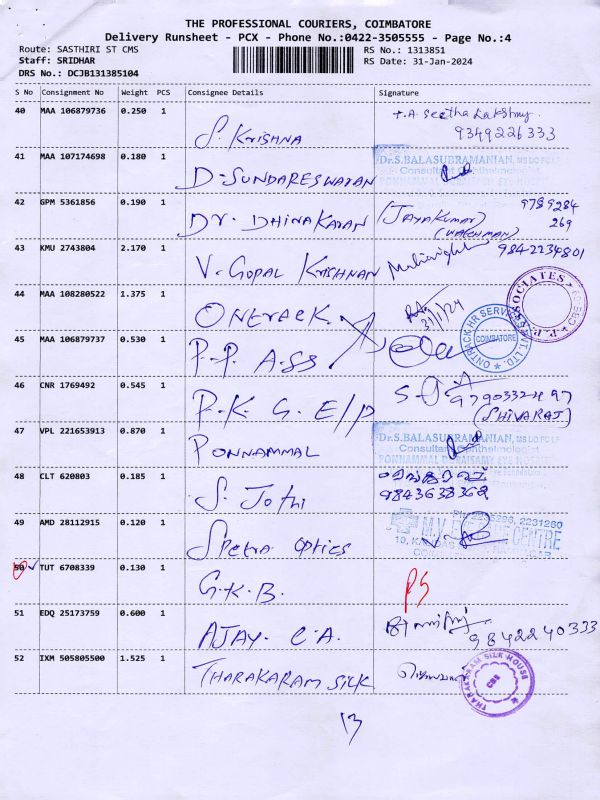 THE PROFESSIONAL COURIERS, COIMBATORE
Delivery Runsheet - PCX - Phone No.:0422-3505555 - Page No.:4
Route: SASTHIRI ST CMS
RS No.: 1313851
Staff: SRIDHAR
RS Date: 31-Jan-2024
DRS No.: DCJB131385104
S No Consignment No Weight PCS Consignee Details Signature
40 MAA 106879736 0.250 1 S. KRISHNA
9349226333
41 MAA 107174698 0.180 1 D-SUNDARESWARAN
Dr.S.BALASUBRAMANIAN,
Consultant Ophthalmologist
42 GPM 5361856 0.190 1 Dr. DHINAKARAN (JAYAKUMAR) 9789284
(WATCHMAN) 269
43 KMU 2743804 2.170 1 V. GOPAL KRISHNAN 9842234801
44 MAA 108280522 1.375 1 ONTRACK
31/1/24
ONTRACK HR SERVICES PVT. LTD.
COIMBATORE
45 MAA 106879737 0.530 1 P.P. ASS
46 CNR 1769492 0.545 1 P.K. G. E/P
9790332497
(SHIVARAJ)
47 VPL 221653913 0.870 1 PONNAMMAL
Dr.S.BALASUBRAMANIAN,
Consultant Ophthalmologist
48 CLT 620803 0.185 1 S. Jothi
9843638368
49 AMD 28112915 0.120 1 Spectra Optics
50 TUT 6708339 0.130 1 G.K.B.
51 EDQ 25173759 0.600 1 AJAY. C.A.
9842240333
52 IXM 505805500 1.525 1 THARAKARAM SILK
THARAKARAM SILK HOUSE
CBE
13